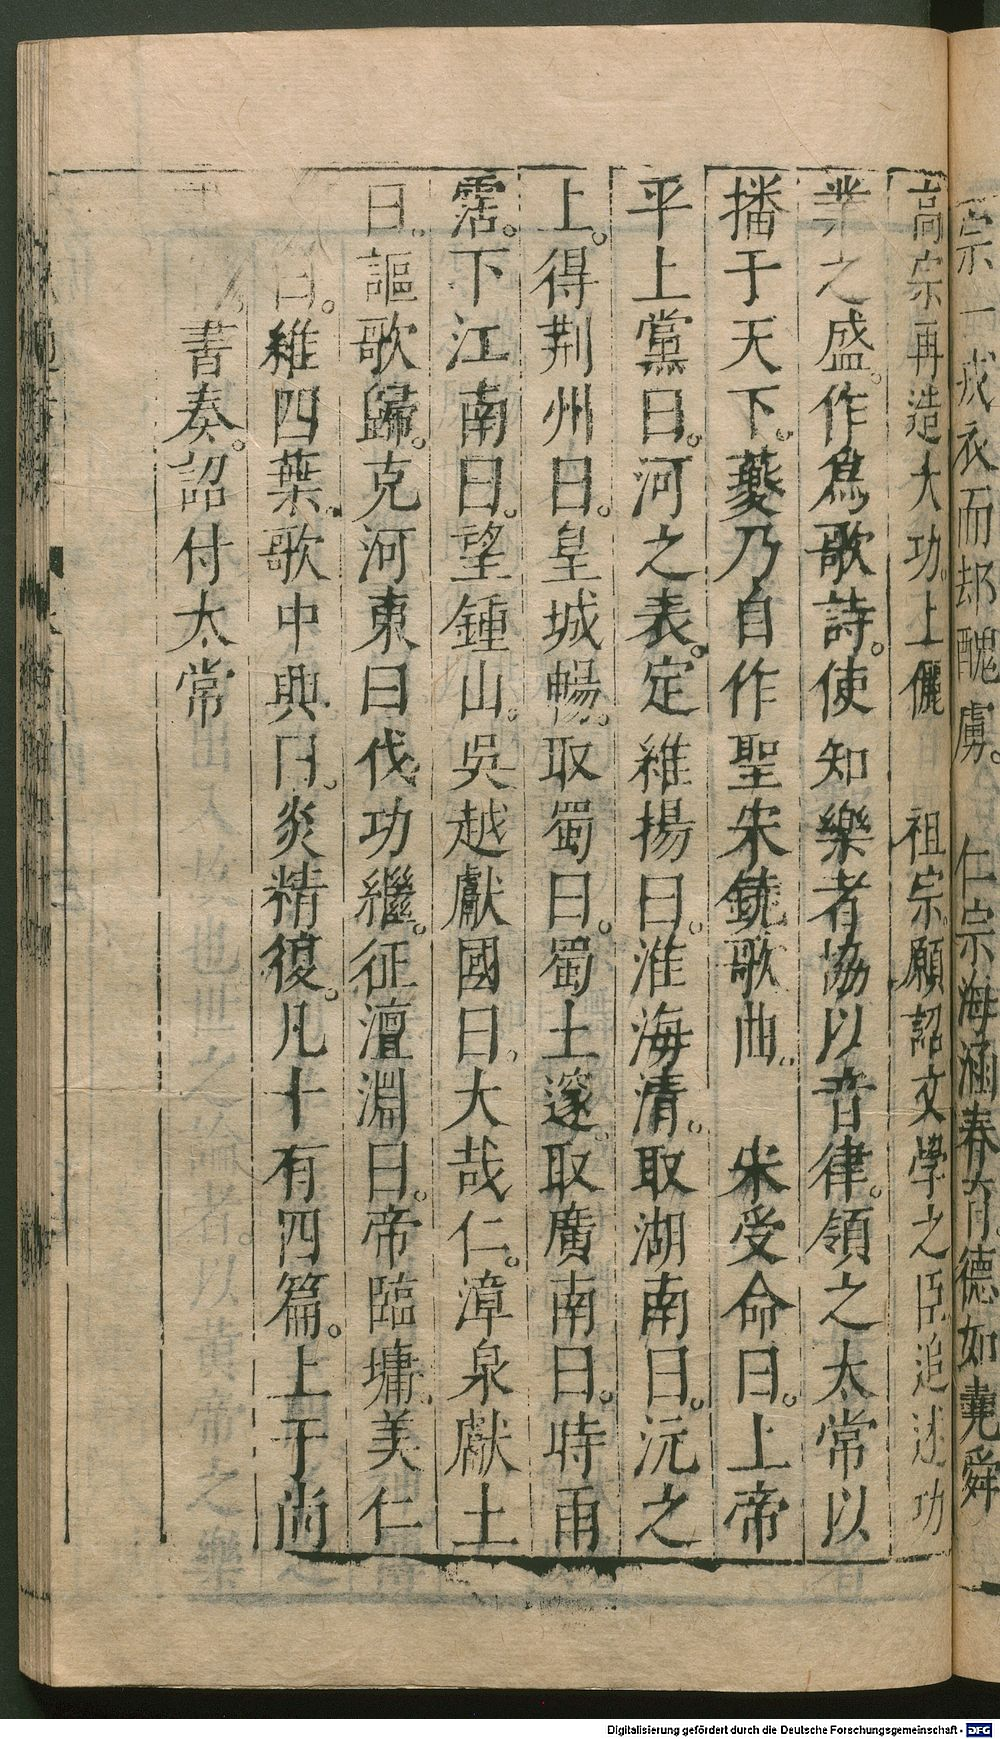 宗一戎衣而却醜虜。　仁宗海涵春育。德如堯舜
高宗再造大功。上儷　祖宗。願詔文學之臣。追述功
業之盛。作爲歌詩。使知樂者協以音律。領之太常。以
播于天下。夔乃自作聖宋鐃歌曲。　宋受命曰。上帝
平上黨曰。河之表。定維揚曰。淮海清。取湖南曰。沅之
上。得荆州曰。皇城暢。取蜀曰。蜀土邃。取廣南曰。時雨
霑。下江南曰。望鍾山。吳越獻國曰。大哉仁。漳泉獻土
曰。謳歌歸。克河東曰伐功繼。征澶淵曰。帝臨墉。美仁
曰。維四葉。歌中興曰。炎精復。凡十有四篇。上于尚
書奏。詔付太常
Digitalisierung gefördert durch die Deutsche Forschungsgemeinschaft - DFG